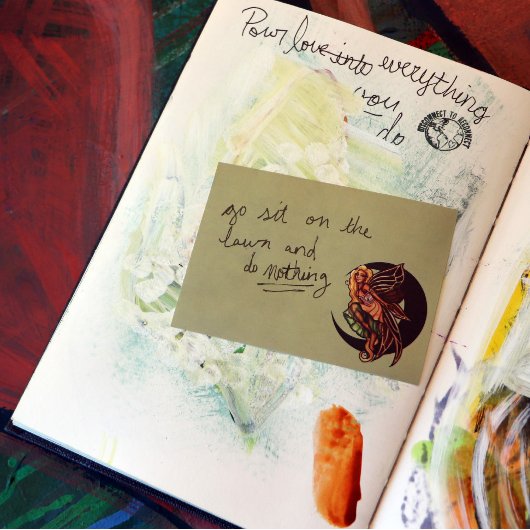 Pour love into everything
you
do
DISCONNECT TO RECONNECT
go sit on the
lawn and
do nothing